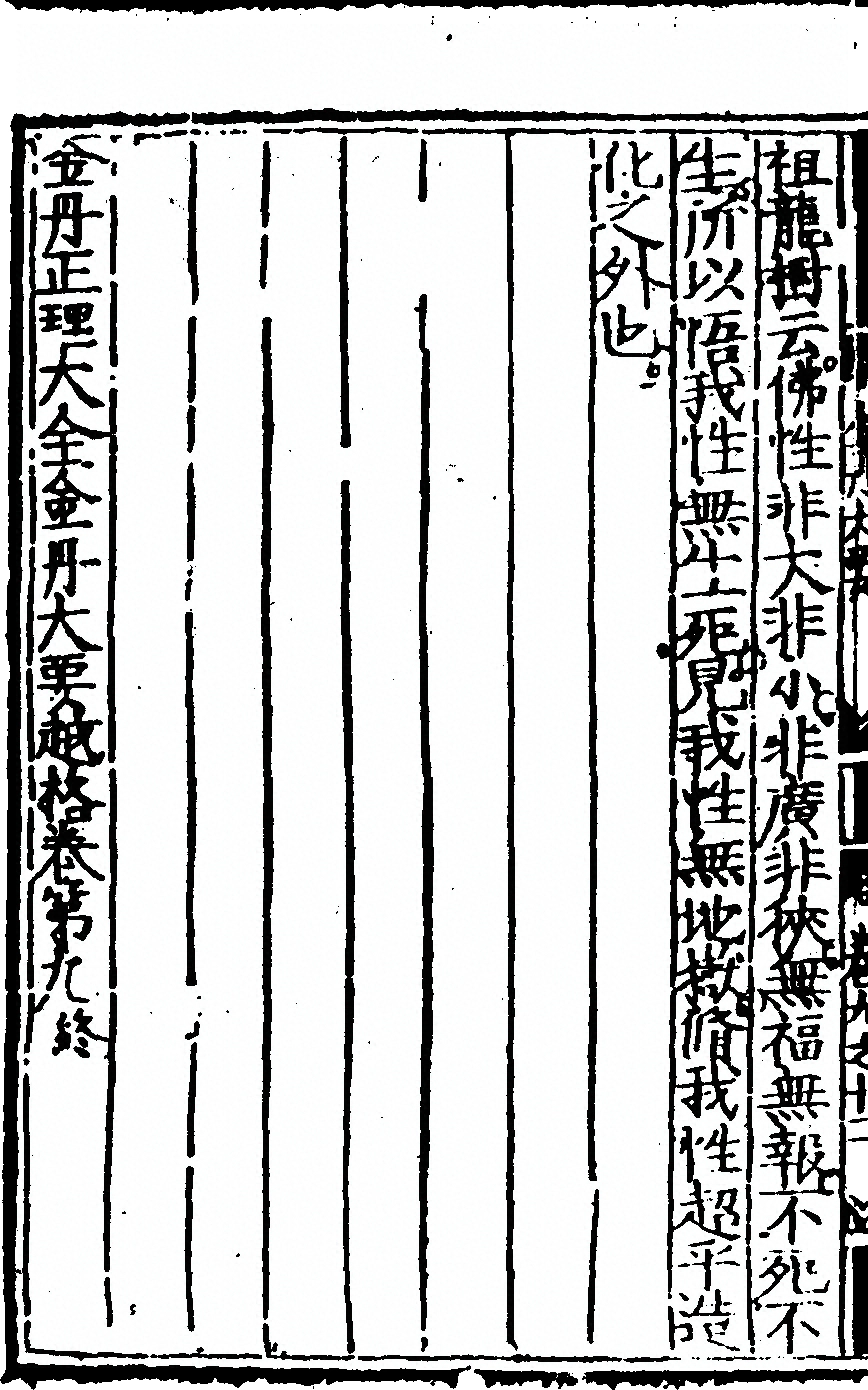 祖龍樹云佛性非大非小非廣非狹無福無報不死不
生所以悟我性無生死見我性無地獄脩我性超乎造
化之外也
金丹正理大全金丹大要越格卷第九 終